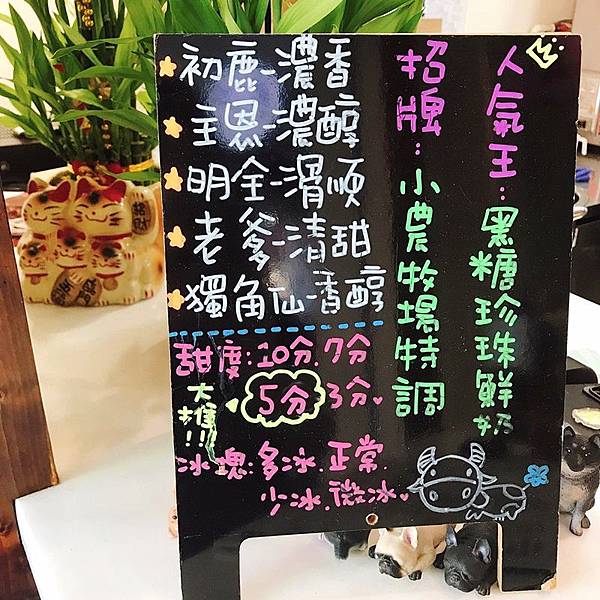 人氣王：黑糖珍珠鮮奶
招牌：小農牧場特調
初鹿-濃香
主恩-濃醇
明全-滑順
老爹-清甜
獨角仙-香醇
甜度：10分.7分
5分 3分
大推!!!
冰塊：多冰.正常.
少冰.微冰